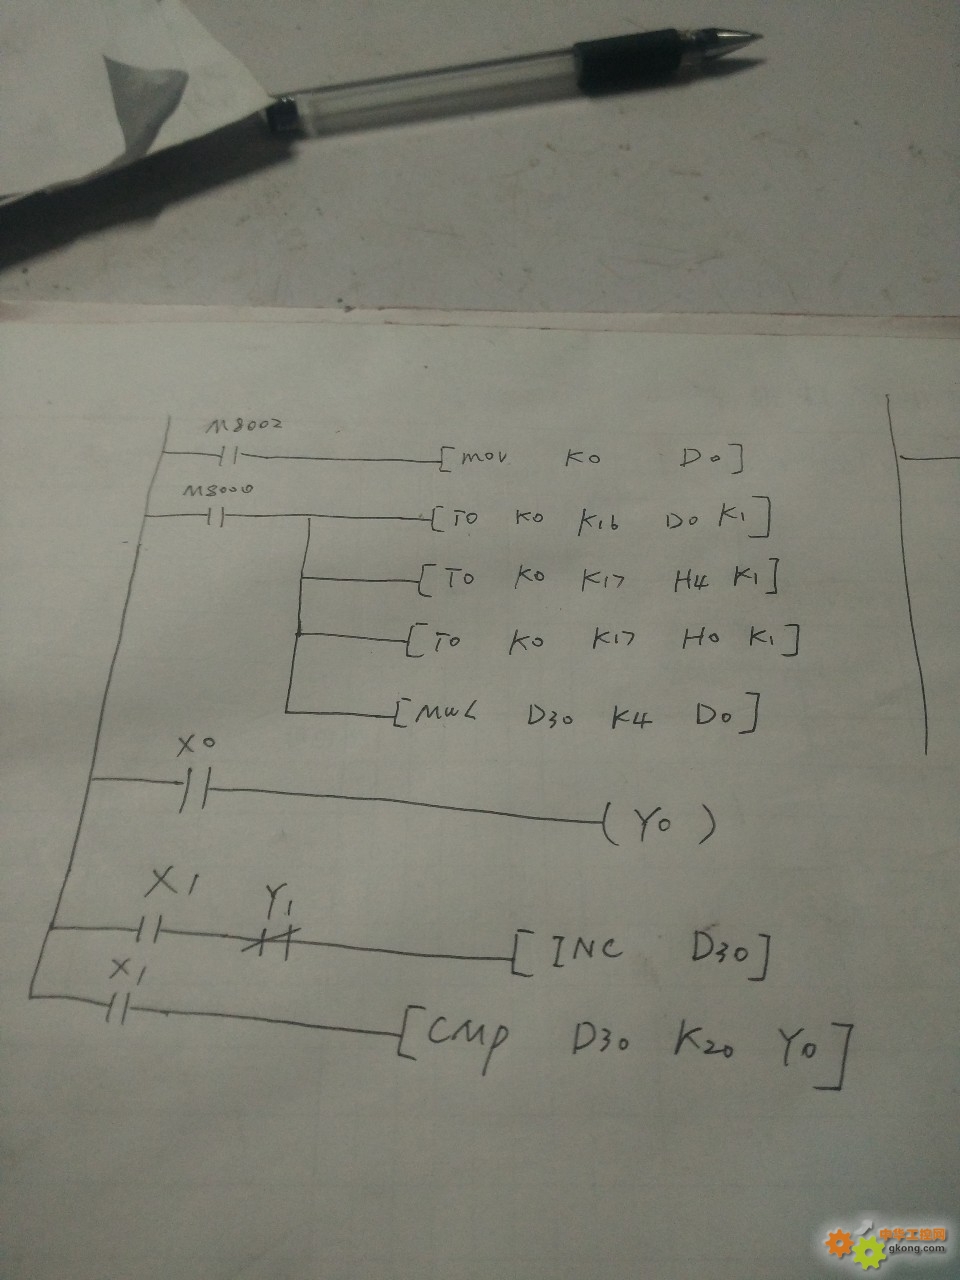 M8002
[MOV K0 D0]
M8000
[TO K0 K16 D0 K1]
[TO K0 K17 H4 K1]
[TO K0 K17 H0 K1]
[MUL D30 K4 D0]
X0
(Y0)
X1 Y1
[INC D30]
X1
[CMP D30 K20 Y0]
中华工控网
gkong.com